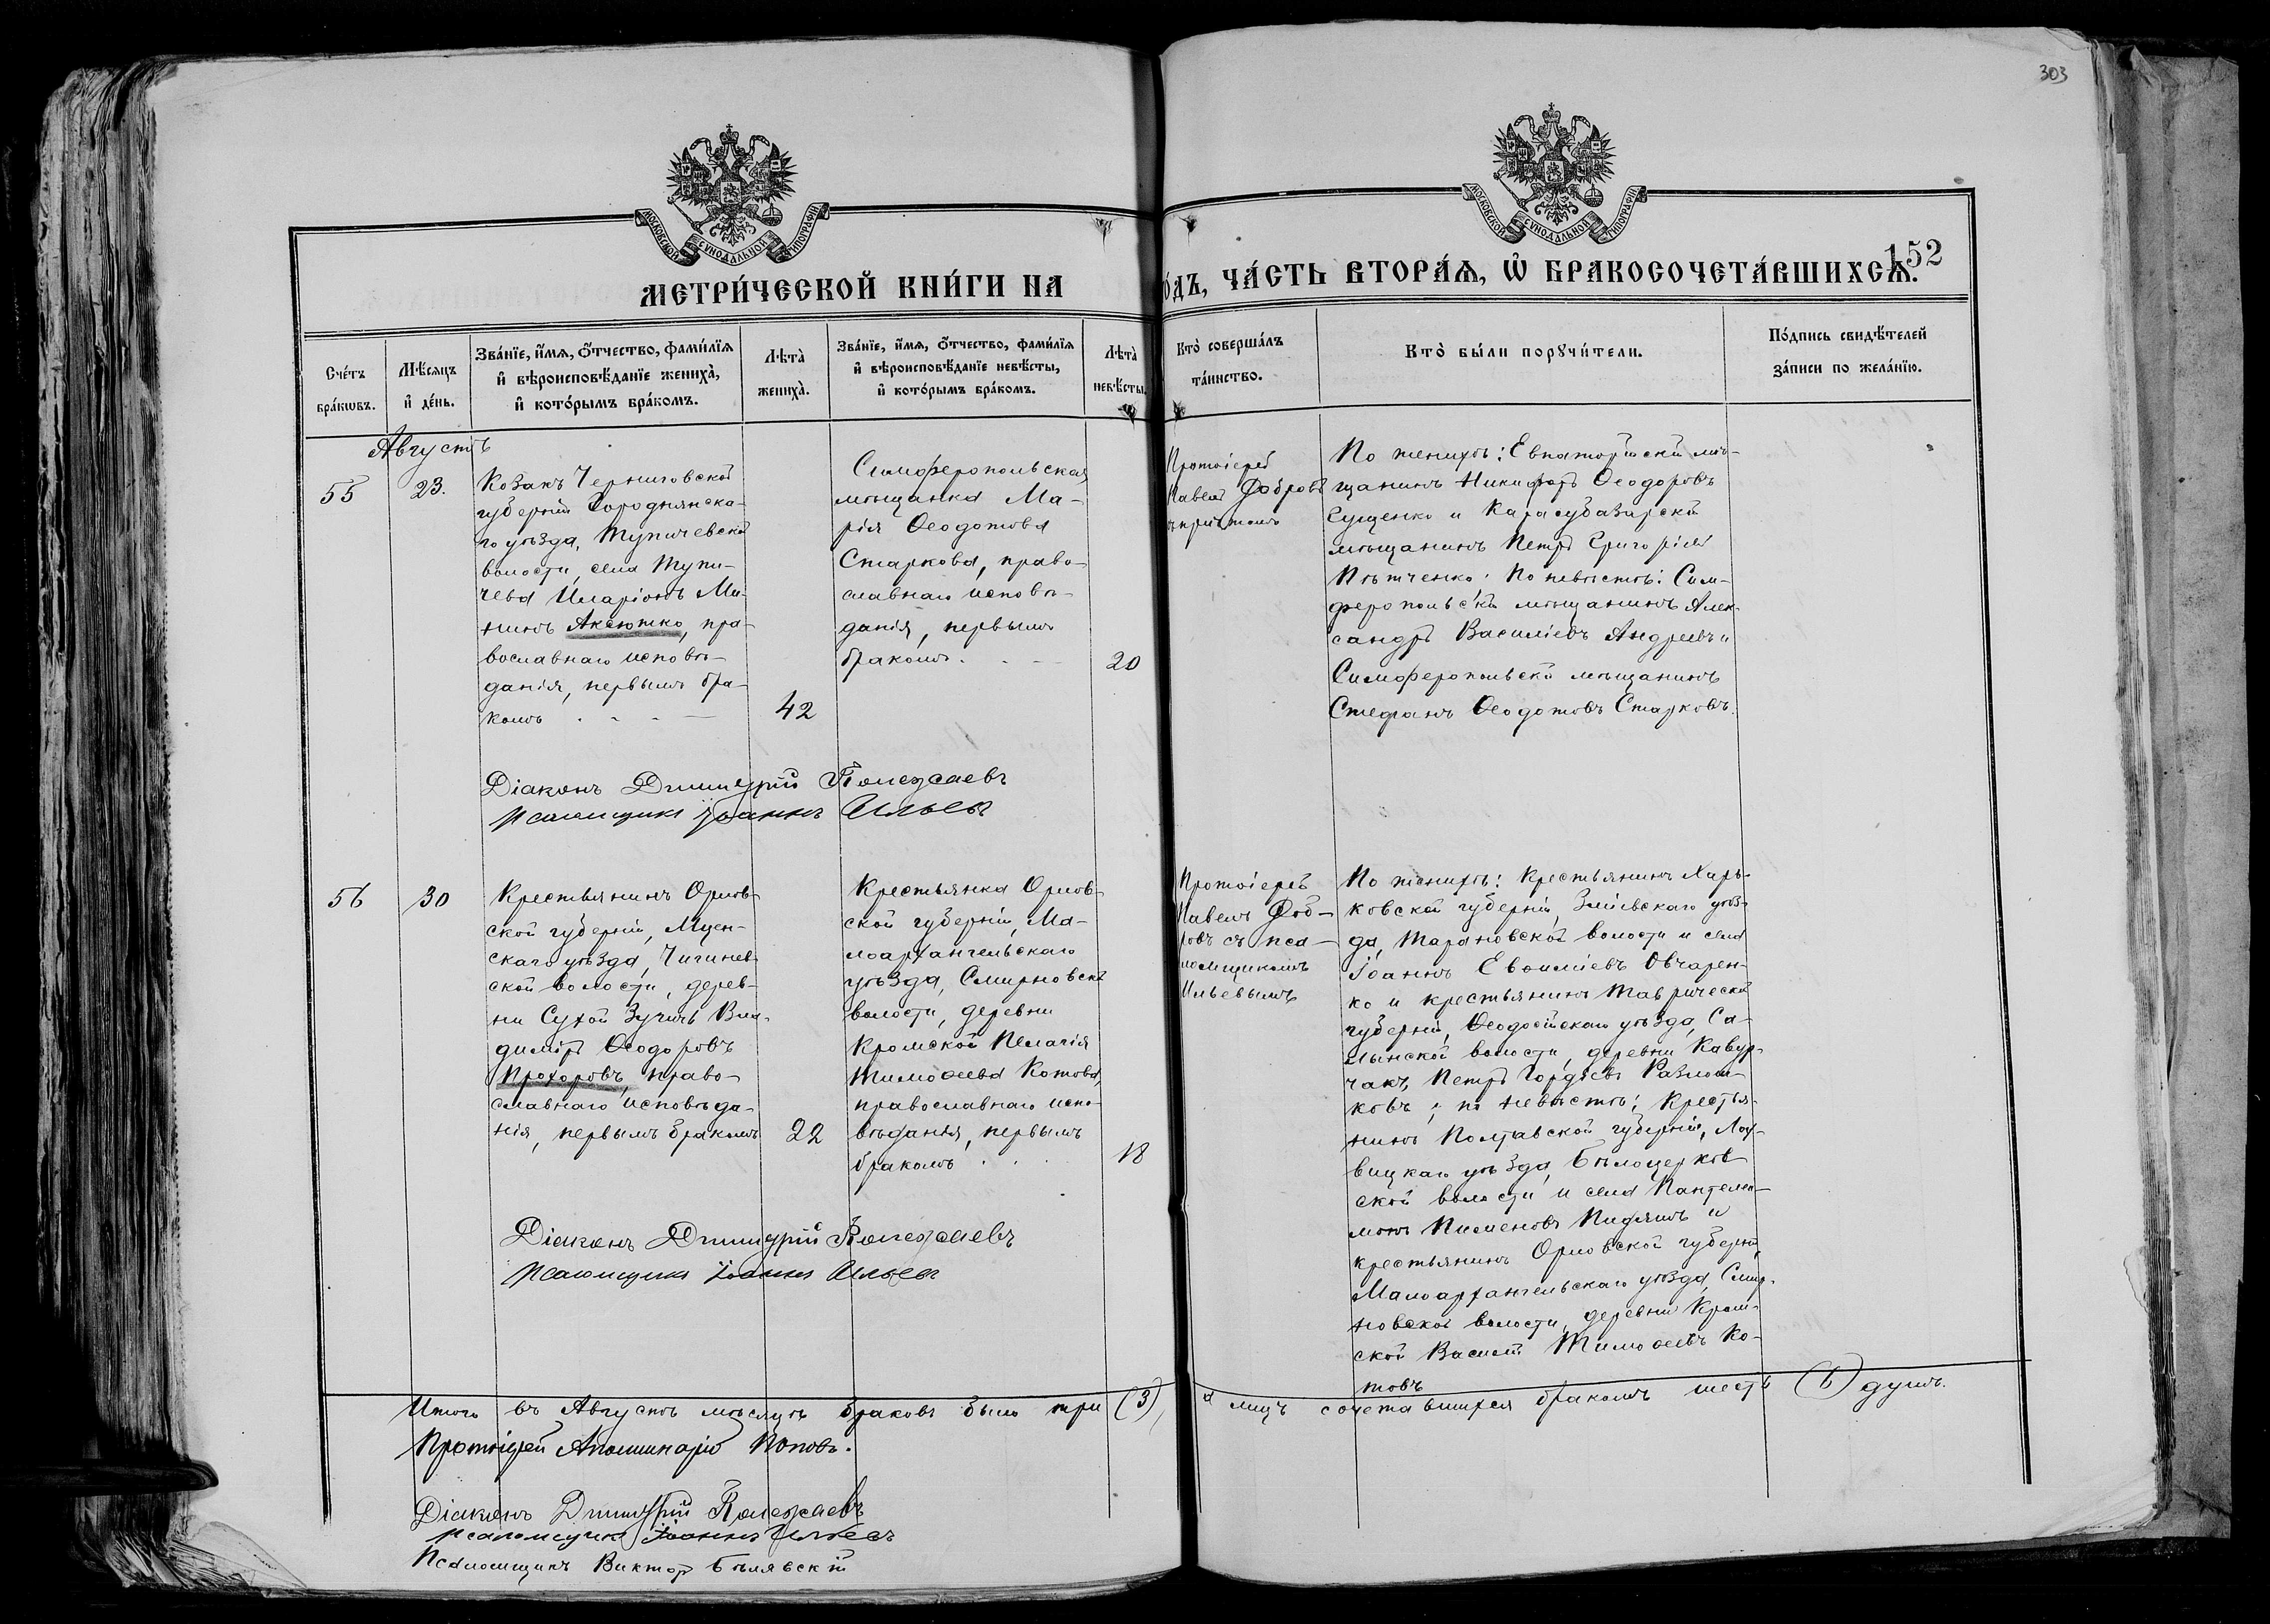 303
МОСКОВСКОЙ СѴНОДАЛЬНОЙ ТИПОГРАФІИ
МОСКОВСКОЙ СѴНОДАЛЬНОЙ ТИПОГРАФІИ
152
МЕТРИ́ЧЕСКОЙ КНИ́ГИ НА
О́ДЪ, ЧА́СТЬ ВТОРА́Ѧ, Ѡ҆ БРАКОСОЧЕТА́ВШИХСѦ.
Сче́тъ бра́кѡвъ.
Мѣ́сѧцъ и҆ де́нь.
Зва́нїе, и҆́мѧ, ѻ҆́тчество, фами́лїѧ и҆ вѣроисповѣ́данїе жениха̀, и҆ кото́рымъ бра́комъ.
Лѣта̀ жениха̀.
Зва́нїе, и҆́мѧ, ѻ҆́тчество, фами́лїѧ и҆ вѣроисповѣ́данїе невѣ́сты, и҆ кото́рымъ бра́комъ.
Лѣта̀ невѣ́сты.
Кто̀ соверша́лъ та́инство.
Кто̀ бы́ли порꙋчи́тели.
По́дпись свидѣ́телей за́писи по жела́нїю.
Августъ
55
23.
Козакъ Черниговской
губерніи Городнянска-
го уѣзда, Тупичевской
волости, села Тупи-
чева Иларіонъ Ми-
нинъ Аксютко, пра-
вославнаго исповѣ-
данія, первымъ бра-
комъ
42
Симферопольская
мѣщанка Ма-
рія Ѳеодотова
Старкова, право-
славнаго исповѣ-
данія, первымъ
бракомъ.
20
Протоіерей
Павелъ Добровъ
съ причтомъ
По женихѣ: Евпаторійскій мѣ-
щанинъ Никифоръ Ѳеодоровъ
Сущенко и Карасубазарскій
мѣщанинъ Петръ Григоріевъ
Пѣтченко. По невѣстѣ: Сим-
феропольскій мѣщанинъ Алек-
сандръ Василіевъ Андреевъ и
Симферопольскій мѣщанинъ
Стефанъ Ѳеодотовъ Старковъ.
Діаконъ Димитрій Полежаевъ
Псаломщикъ Іоаннъ Ильевъ
56
30
Крестьянинъ Орлов-
ской губерніи, Мцен-
скаго уѣзда, Чигинев-
ской волости, дерев-
ни Сухой Зучъ Вла-
диміръ Ѳеодоровъ
Прохоровъ, право-
славнаго исповѣда-
нія, первымъ бракомъ
22
Крестьянка Орлов-
ской губерніи, Ма-
лоархангельскаго
уѣзда, Смирновской
волости, деревни
Кромской Пелагія
Тимоѳеева Котова,
православнаго испо-
вѣданія, первымъ
бракомъ
18
Протоіерей
Павелъ Доб-
ровъ съ пса-
ломщикомъ
Ильевымъ
По женихѣ: Крестьянинъ Харь-
ковской губерніи, Зміевскаго уѣз-
да, Тарановской волости и села
Іоаннъ Евѳиміевъ Овчарен-
ко и крестьянинъ Таврической
губерніи, Ѳеодосійскаго уѣзда, Са-
лынской волости, деревни Кавур-
чакъ, Петръ Гордѣевъ
по невѣстѣ: Крестья-
нинъ Полтавской губерніи, Лох-
вицкаго уѣзда, Бѣлоцерков-
ской волости и села Пантелеи-
монъ Пименовъ и
крестьянинъ Орловской губерніи,
Малоархангельскаго уѣзда, Смир-
новской волости, деревни Кром-
ской Василій Тимоѳеевъ Ко-
товъ
Діаконъ Димитрій Полежаевъ
Псаломщикъ Іоаннъ Ильевъ
Итого въ Августѣ мѣсяцѣ браковъ было три (3), а лицъ сочетавшихся бракомъ шесть (6) душъ.
Протоіерей Аполлинарій Поповъ.
Діаконъ Димитрій Полежаевъ
Псаломщикъ Іоаннъ Ильевъ
Псаломщикъ Викторъ Бѣлявскій